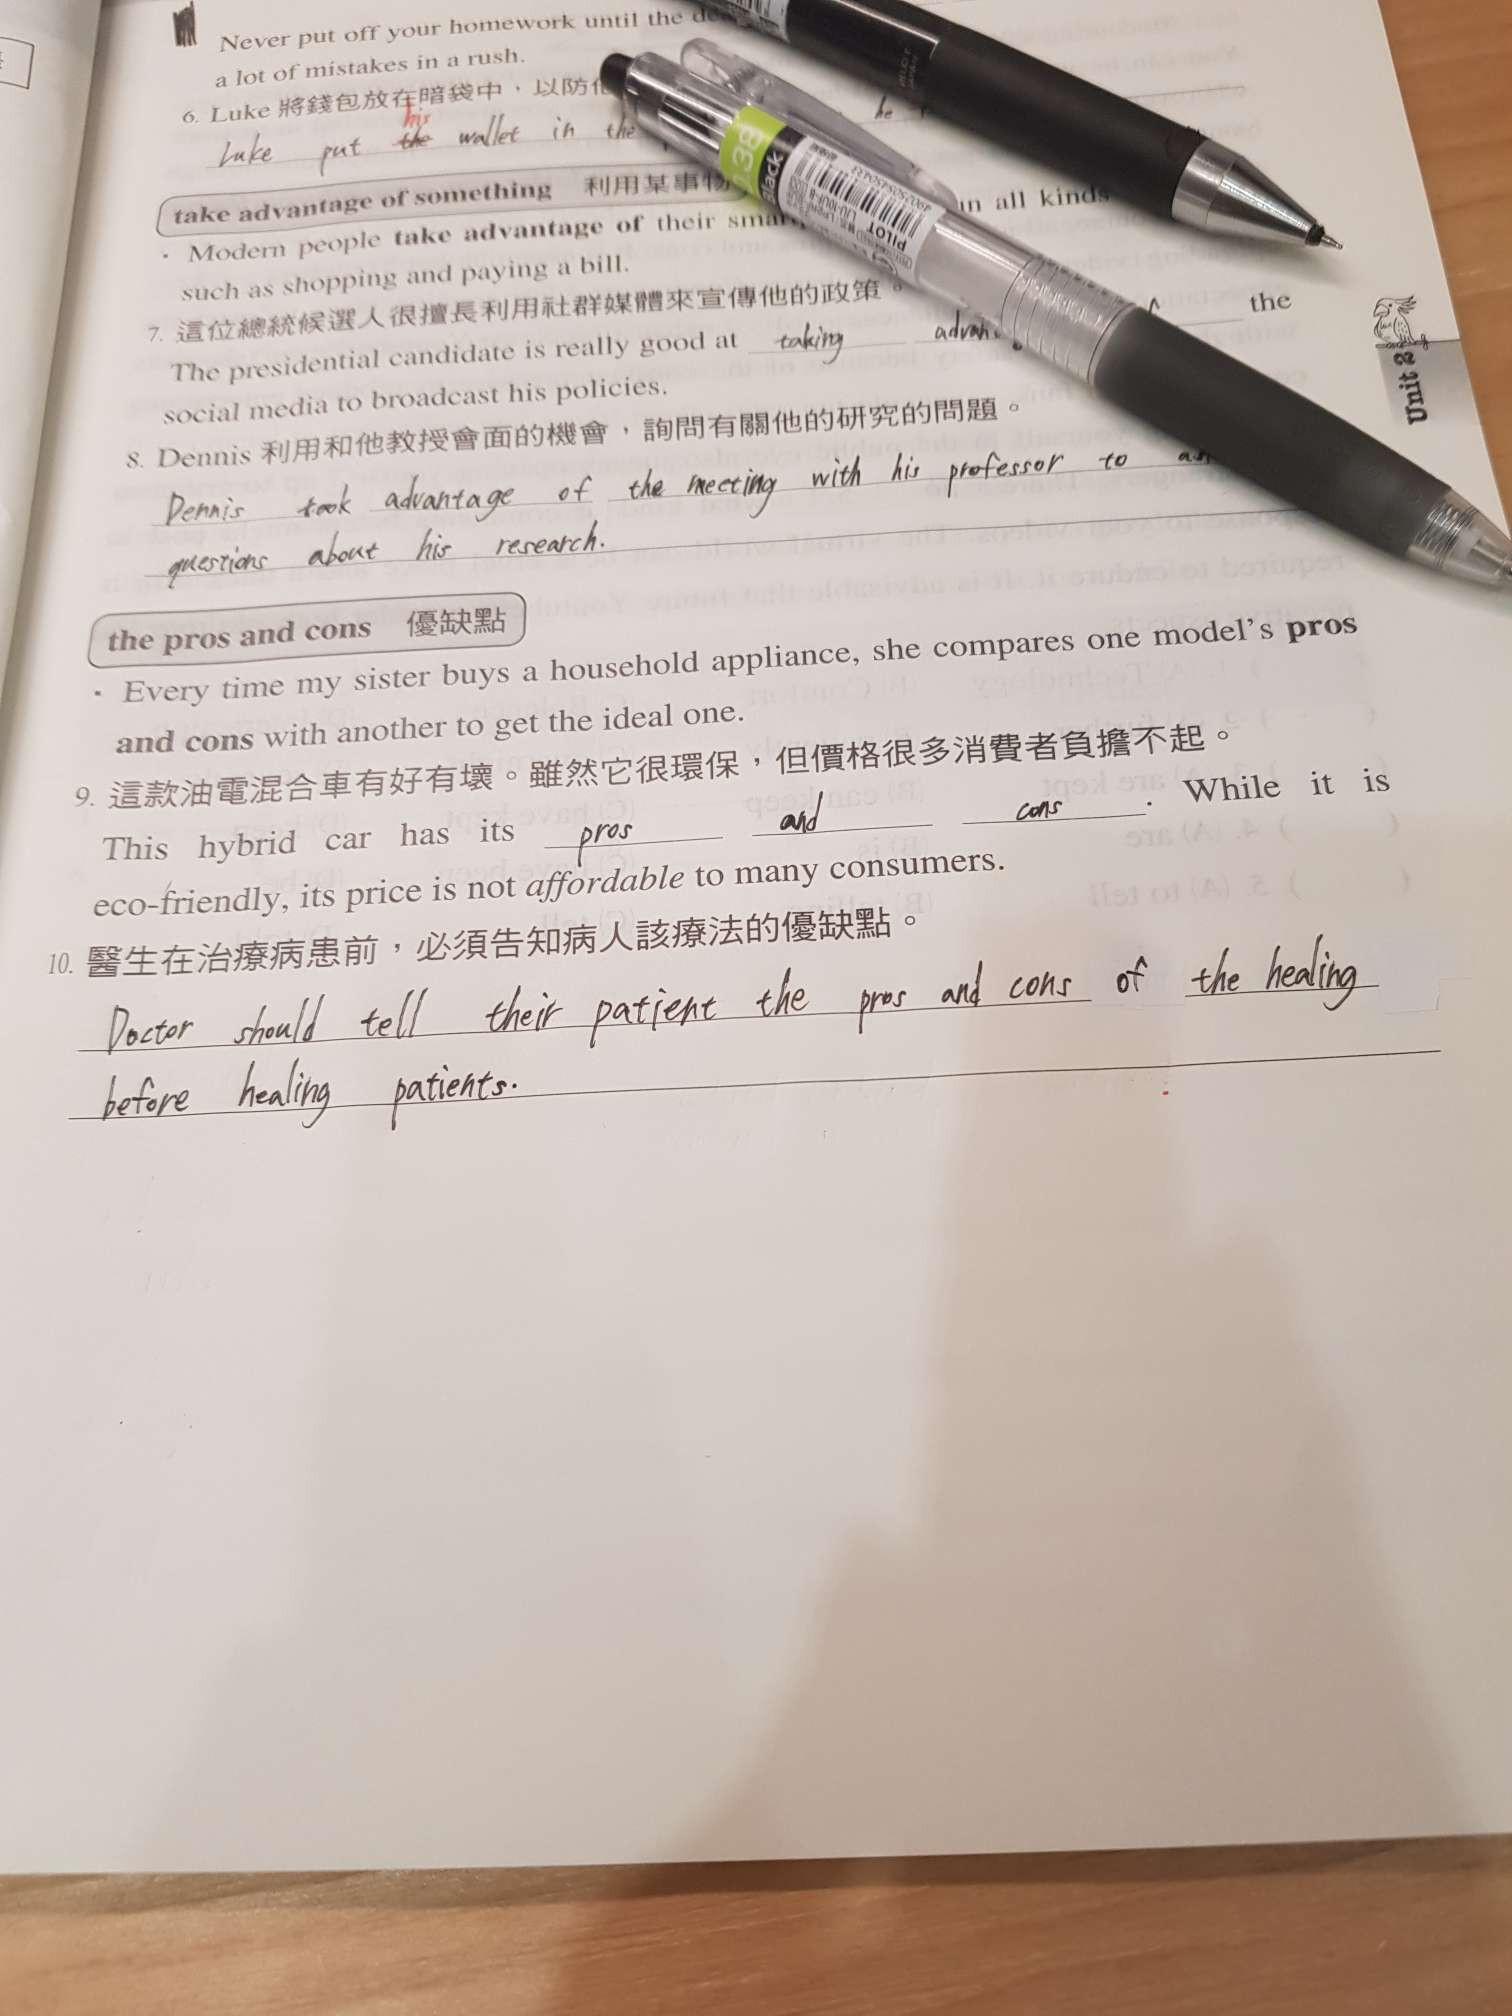 Never put off your homework until the
a lot of mistakes in a rush.
6. Luke 將錢包放在暗袋中，以防
his
Luke put the wallet in the he
take advantage of something 利用某事物
· Modern people take advantage of their in all kinds
such as shopping and paying a bill.
7. 這位總統候選人很擅長利用社群媒體來宣傳他的政策。
The presidential candidate is really good at taking the
social media to broadcast his policies.
8. Dennis 利用和他教授會面的機會，詢問有關他的研究的問題。
Dennis took advantage of the meeting with his professor to
questions about his research.
the pros and cons 優缺點
· Every time my sister buys a household appliance, she compares one model's pros
and cons with another to get the ideal one.
9. 這款油電混合車有好有壞。雖然它很環保，但價格很多消費者負擔不起。
This hybrid car has its pros and cons. While it is
eco-friendly, its price is not affordable to many consumers.
10. 醫生在治療病患前，必須告知病人該療法的優缺點。
Doctor should tell their patient the pros and cons of the healing
before healing patients.
Unit 2
0.38
Black
PILOT